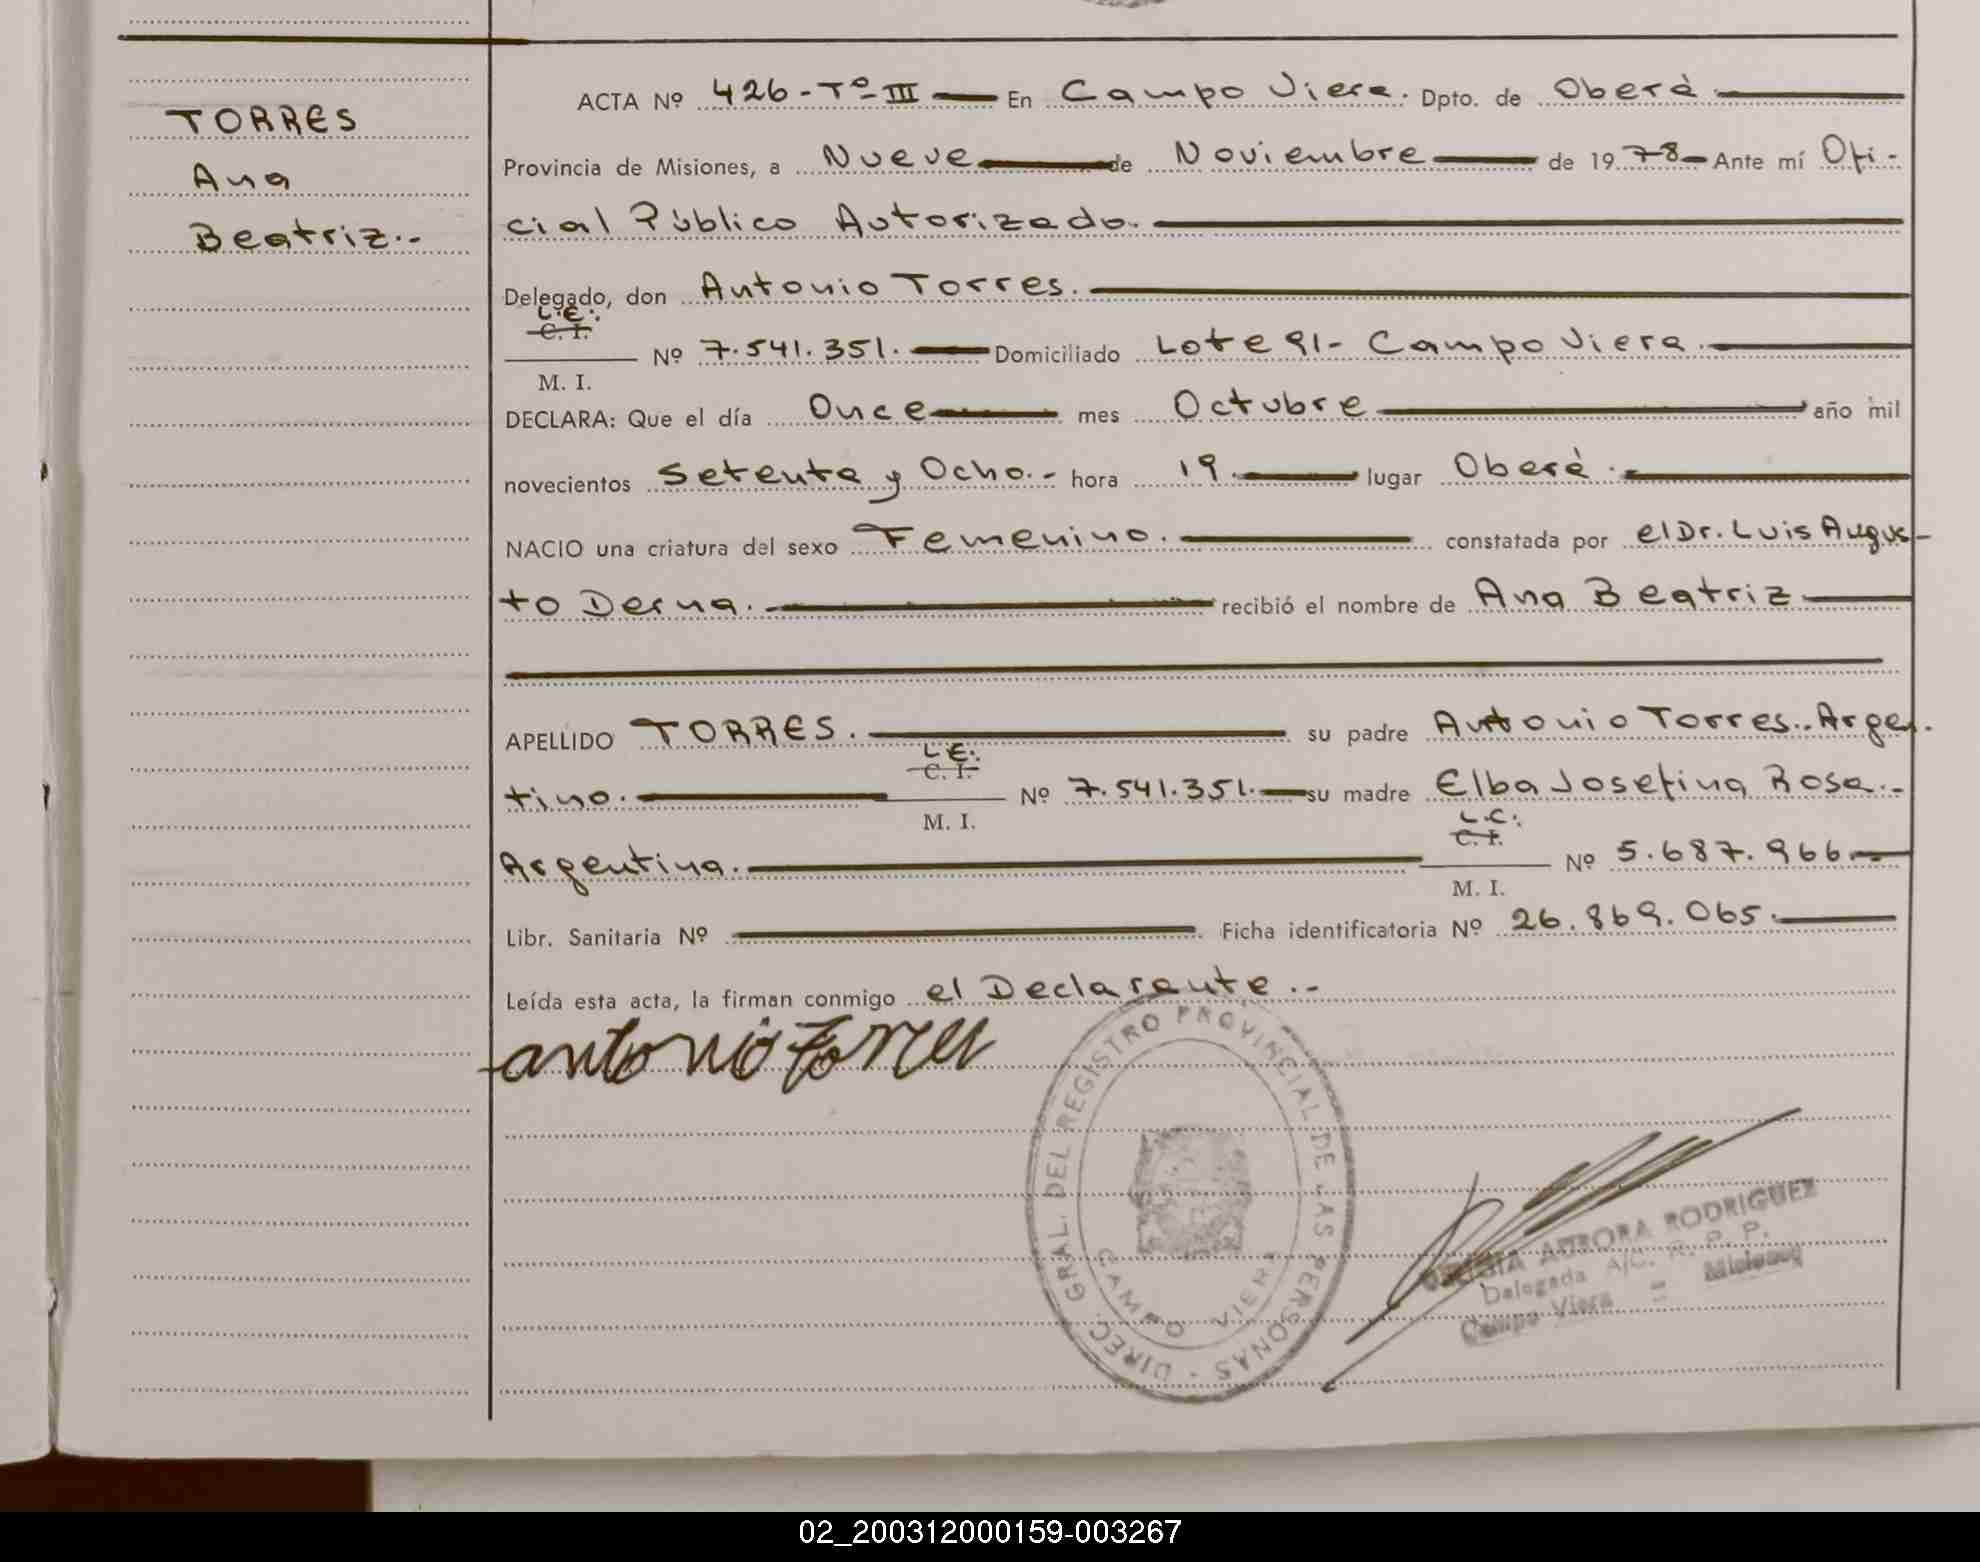 TORRES
Ana
Beatriz.-
ACTA Nº 426-Tº-III En Campo Viera. Dpto. de Oberá
Provincia de Misiones, a Nueve de Noviembre de 1978- Ante mí Ofi-
cial Público Autorizado.
Delegado, don Antonio Torres.
L.E.:
C. I.
M. I.
Nº 7.541.351. Domiciliado Lote 91- Campo Viera.
DECLARA: Que el día Once mes Octubre año mil
novecientos Setenta y Ocho.- hora 19. lugar Oberá.
NACIO una criatura del sexo Femenino. constatada por el Dr. Luis Augus-
to Derna. recibió el nombre de Ana Beatriz
APELLIDO TORRES. su padre Antonio Torres.. Argen-
L.E:
C. I.
tino. Nº 7.541.351. su madre Elba Josefina Rosa.-
M. I.
L.C:
C. I.
Argentina. Nº 5.687.966
M. I.
Libr. Sanitaria Nº Ficha identificatoria Nº 26.869.065.
Leída esta acta, la firman conmigo el Declarante.-
antonio torres
DIREC. GRAL. DEL REGISTRO PROVINCIAL DE LAS PERSONAS -
CAMPO VIERA
AURORA RODRIGUEZ
Delegada A/C. R. P. P.
Campo Viera - Misiones
02_200312000159-003267